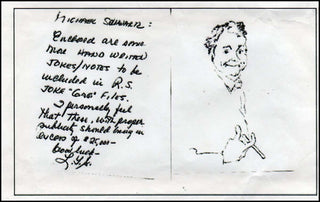 MICHAEL SCHWARTZ:
Enclosed are some
more HAND WRITTEN
JOKES/NOTES to be
included in R.S.
JOKE "CARD" FILES.
I personally feel
that these, with proper
publicity should bring in
excess of $25,000—
Good luck—